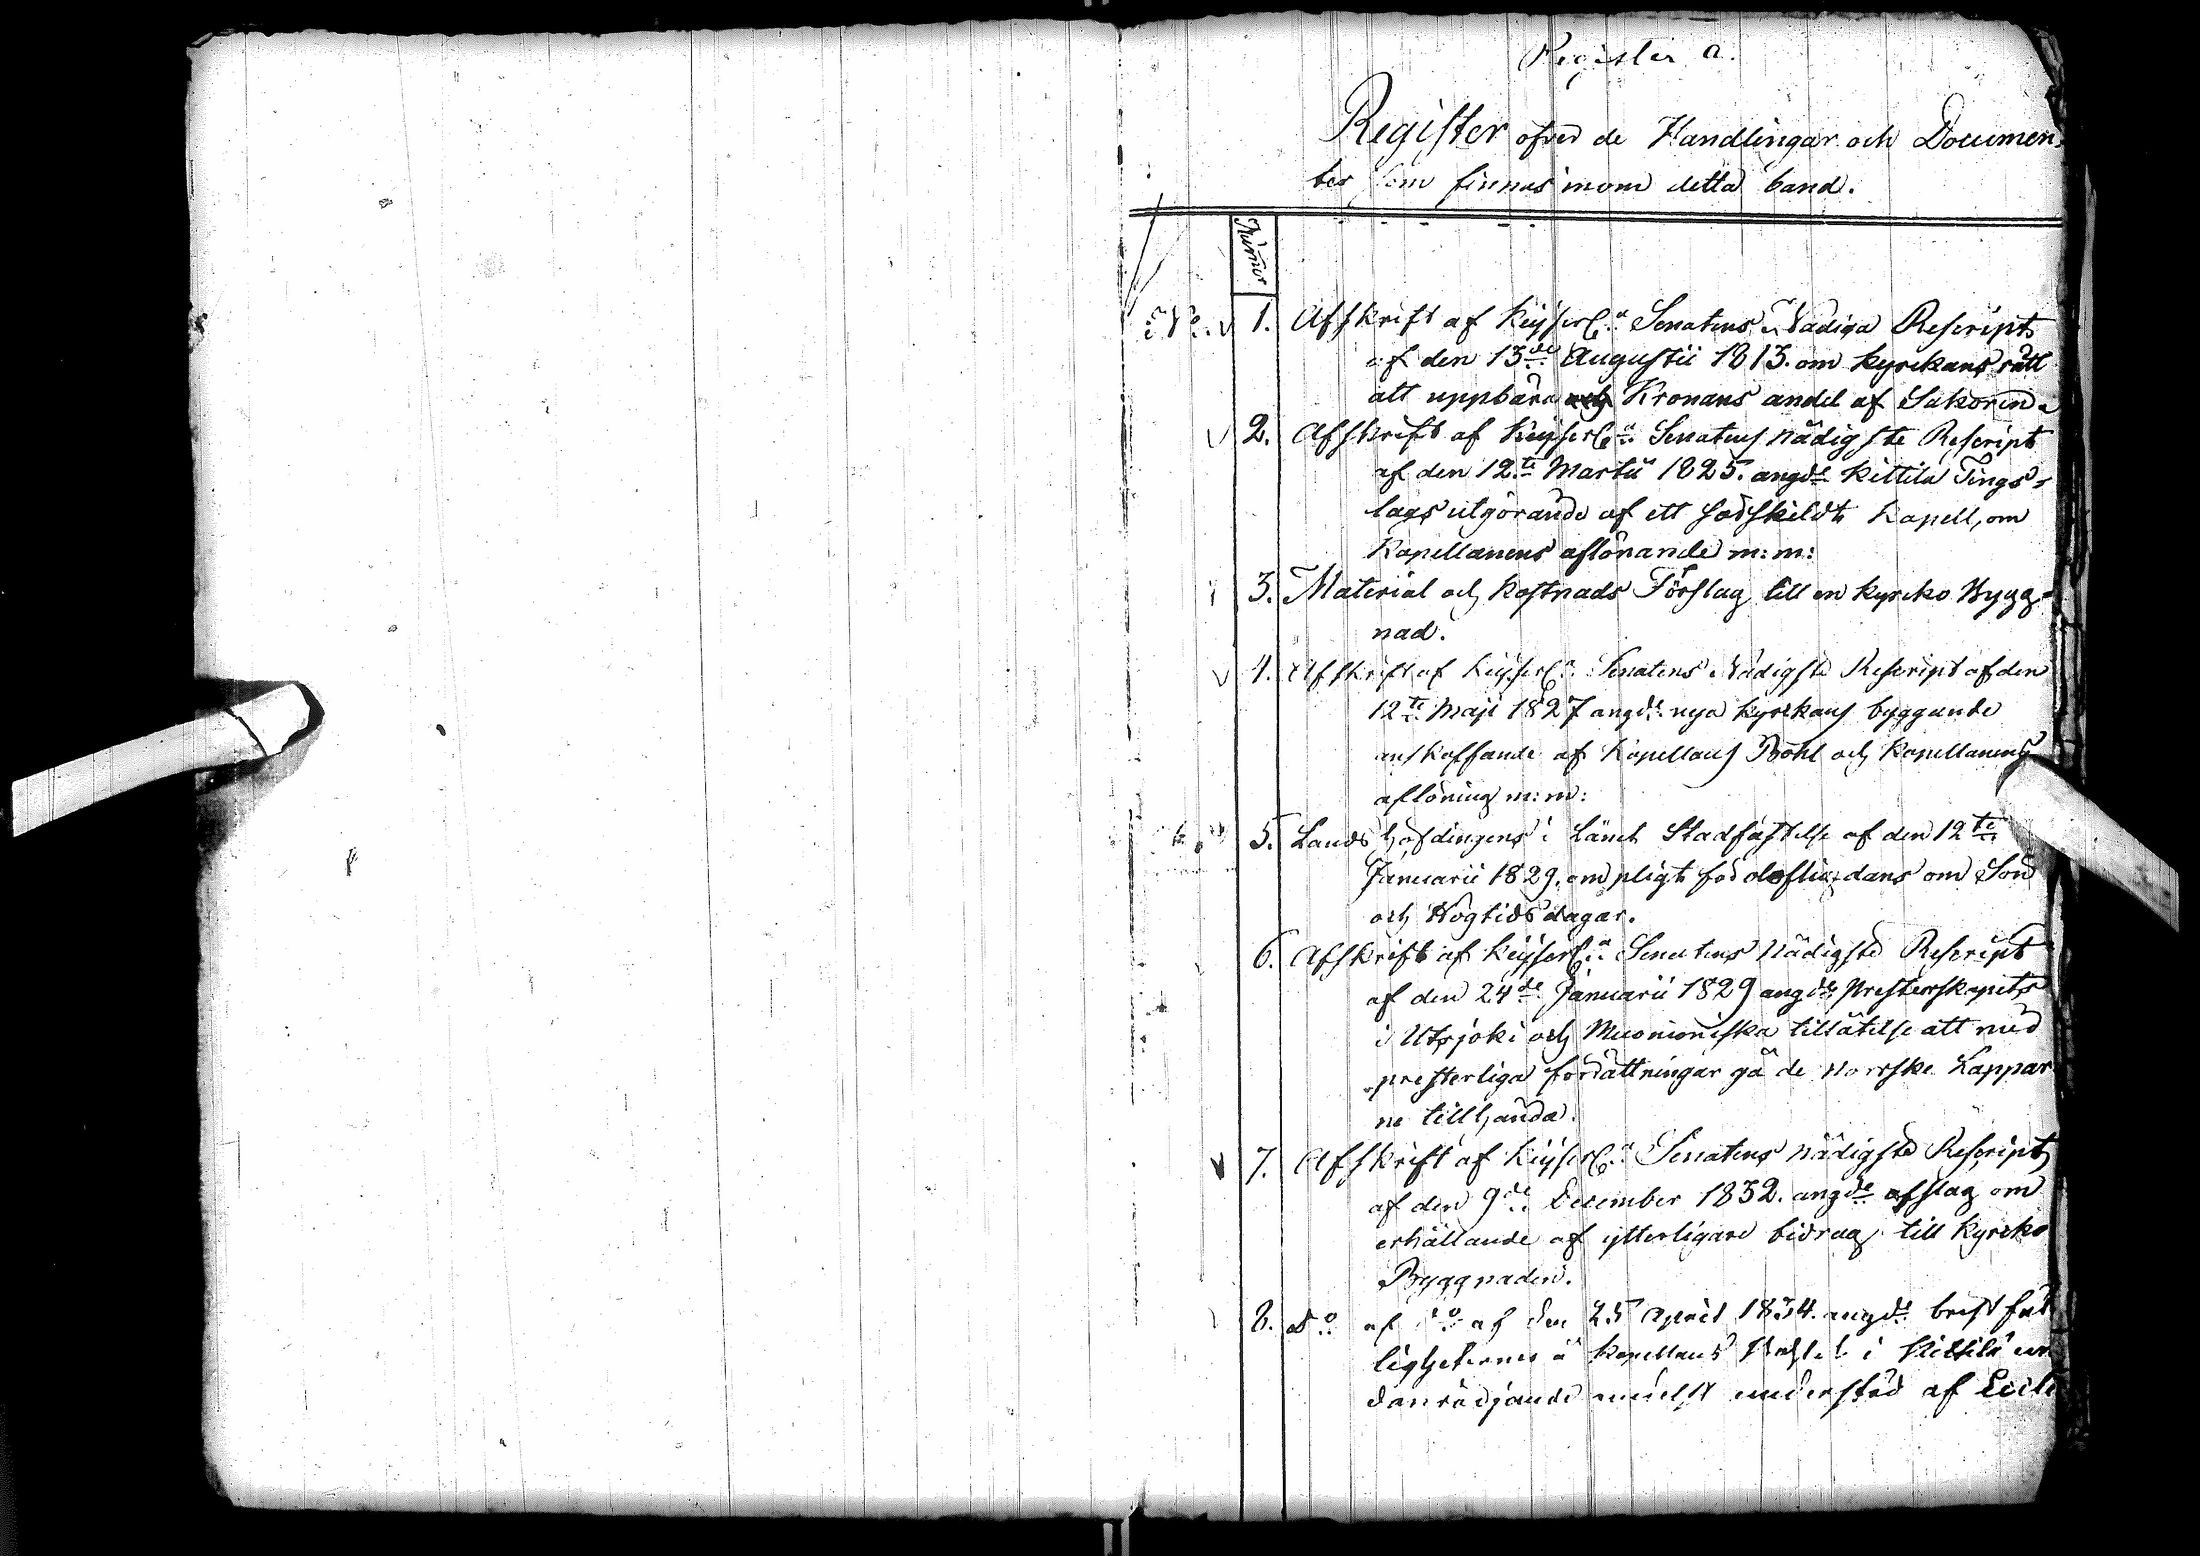 Register a.
Register öfver de Handlingar och Documen
ter som finnas inom detta band.
Numer
No. 1. Afskrift af Keijserl:a Senatens Nådiga Rescript
af den 13de Augustii 1813. om kyrckans rätt
att uppbära Kronans andel af Sakören.
2. Afskrift af Keijserl:a Senatens nådigste Rescript
af den 12te Martii 1825. angde Kittilä Tings-
lags utgörande af ett särskildt Kapell, om
Kapellanens aflönande m: m:
3. Material och Kostnads Förslag till en kyrcko Bygg-
nad.
4. Afskrift af Keijserl:a Senatens Nådigste Rescript af den
12te Maji 1827 angde nya kyrckans byggande
anskaffande af Kapellans Bohl och Kapellanens
aflöning m: m:
5. Lands höfdingens i Länet Stadfästelse af den 12te
Januarii 1829. om pligt för oloflig dans om Sön
och Högtids dagar.
6. Afskrift af Keijserl:a Senatens Nådigste Rescript
af den 24de Januarii 1829 angde Presterskapets
i Utsjoki och Muonioniska tillåtelse att med
presterliga förrättningar gå de norrske Lappar
ne tillhanda.
7. Afskrift af Keijserl:a Senatens nådigste Rescript
af den 9de December 1832. angde afslag om
erhållande af ytterligare bidrag till Kyrcko
Byggnaden.
8. Do af do af den 25 April 1834. angde brist fäl
ligheternes å Kapellans Bohlet i Kittilä un
danrödjande medelst understöd af Eccle